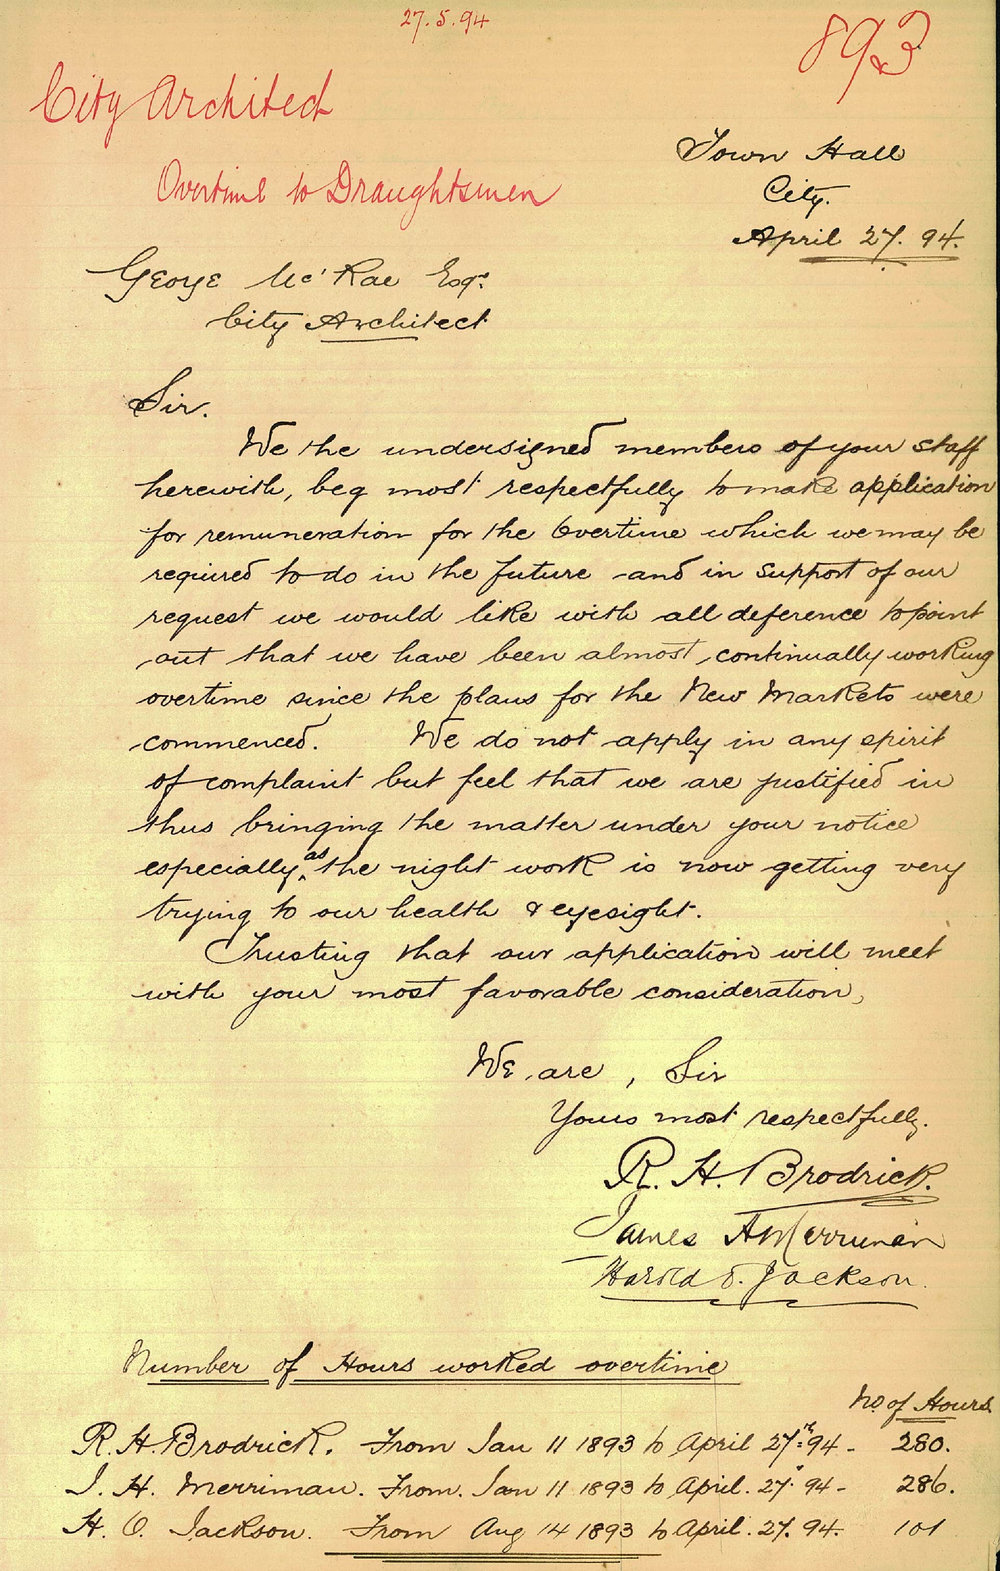 27.5.94
893
City Architect
Overtime to Draughtsmen
Town Hall
City.
April 27. 94.
George McRae Esqr.
City Architect
Sir.
We the undersigned members of your staff
herewith, beg most respectfully to make application
for remuneration for the Overtime which we may be
required to do in the future and in support of our
request we would like with all deference to point
out that we have been almost continually working
overtime since the plans for the New Markets were
commenced. We do not apply in any spirit
of complaint but feel that we are justified in
thus bringing the matter under your notice
especially as the night work is now getting very
trying to our health & eyesight.
Trusting that our application will meet
with your most favorable consideration,
We are, Sir
Yours most respectfully.
R. H. Brodrick.
James H Merriman
Harold O. Jackson.
Number of Hours worked overtime
No. of Hours
R. H. Brodrick. From Jan 11 1893 to April 27th 94 - 280.
J. H. Merriman. From. Jan 11 1893 to April. 27. 94 - 286.
H. O. Jackson. From Aug 14 1893 to April. 27. 94. 101